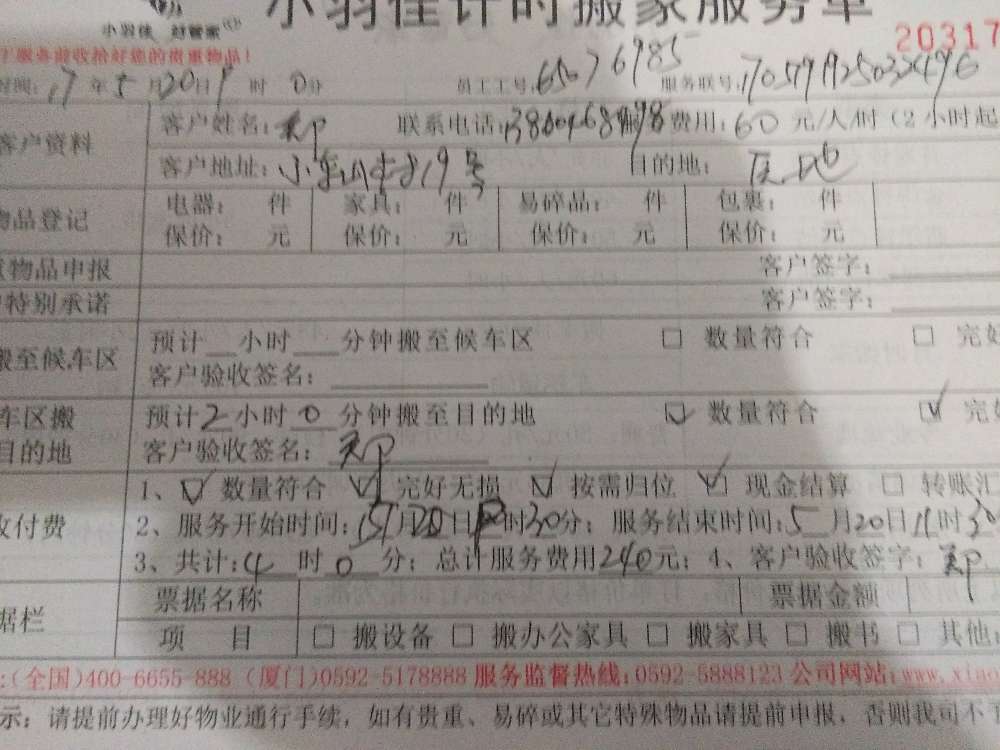 小羽佳计时搬家服务单
小羽佳 好管家
20317
服务前收拾好您的贵重物品!
时间: 17 年 5 月 20 日 9 时 0 分 员工工号: 65076985 服务联号:
客户资料 客户姓名: 郑 联系电话: 费用: 60 元/人/时 (2小时起
客户地址: 19号 目的地: 原地
物品登记 电器: 件 家具: 件 易碎品: 件 包裹: 件
保价: 元 保价: 元 保价: 元 保价: 元
物品申报 客户签字:
特别承诺 客户签字:
搬至候车区 预计 小时 分钟搬至候车区 数量符合 完好
客户验收签名:
车区搬 预计 2 小时 0 分钟搬至目的地 数量符合 完好
目的地 客户验收签名: 郑
1、 数量符合 完好无损 按需归位 现金结算 转账汇
收付费 2、服务开始时间: 5 月 20 日 时 30 分; 服务结束时间: 5 月 20 日 11 时 30
3、共计: 4 时 0 分; 总计服务费用 240 元; 4、客户验收签字: 郑
据栏 票据名称 票据金额
项 目 搬设备 搬办公家具 搬家具 搬书 其他
:(全国)400-6655-888 (厦门)0592-5178888 服务监督热线:0592-5888123 公司网站:www.xiao
示: 请提前办理好物业通行手续, 如有贵重、易碎或其它特殊物品请提前申报, 否则我司不